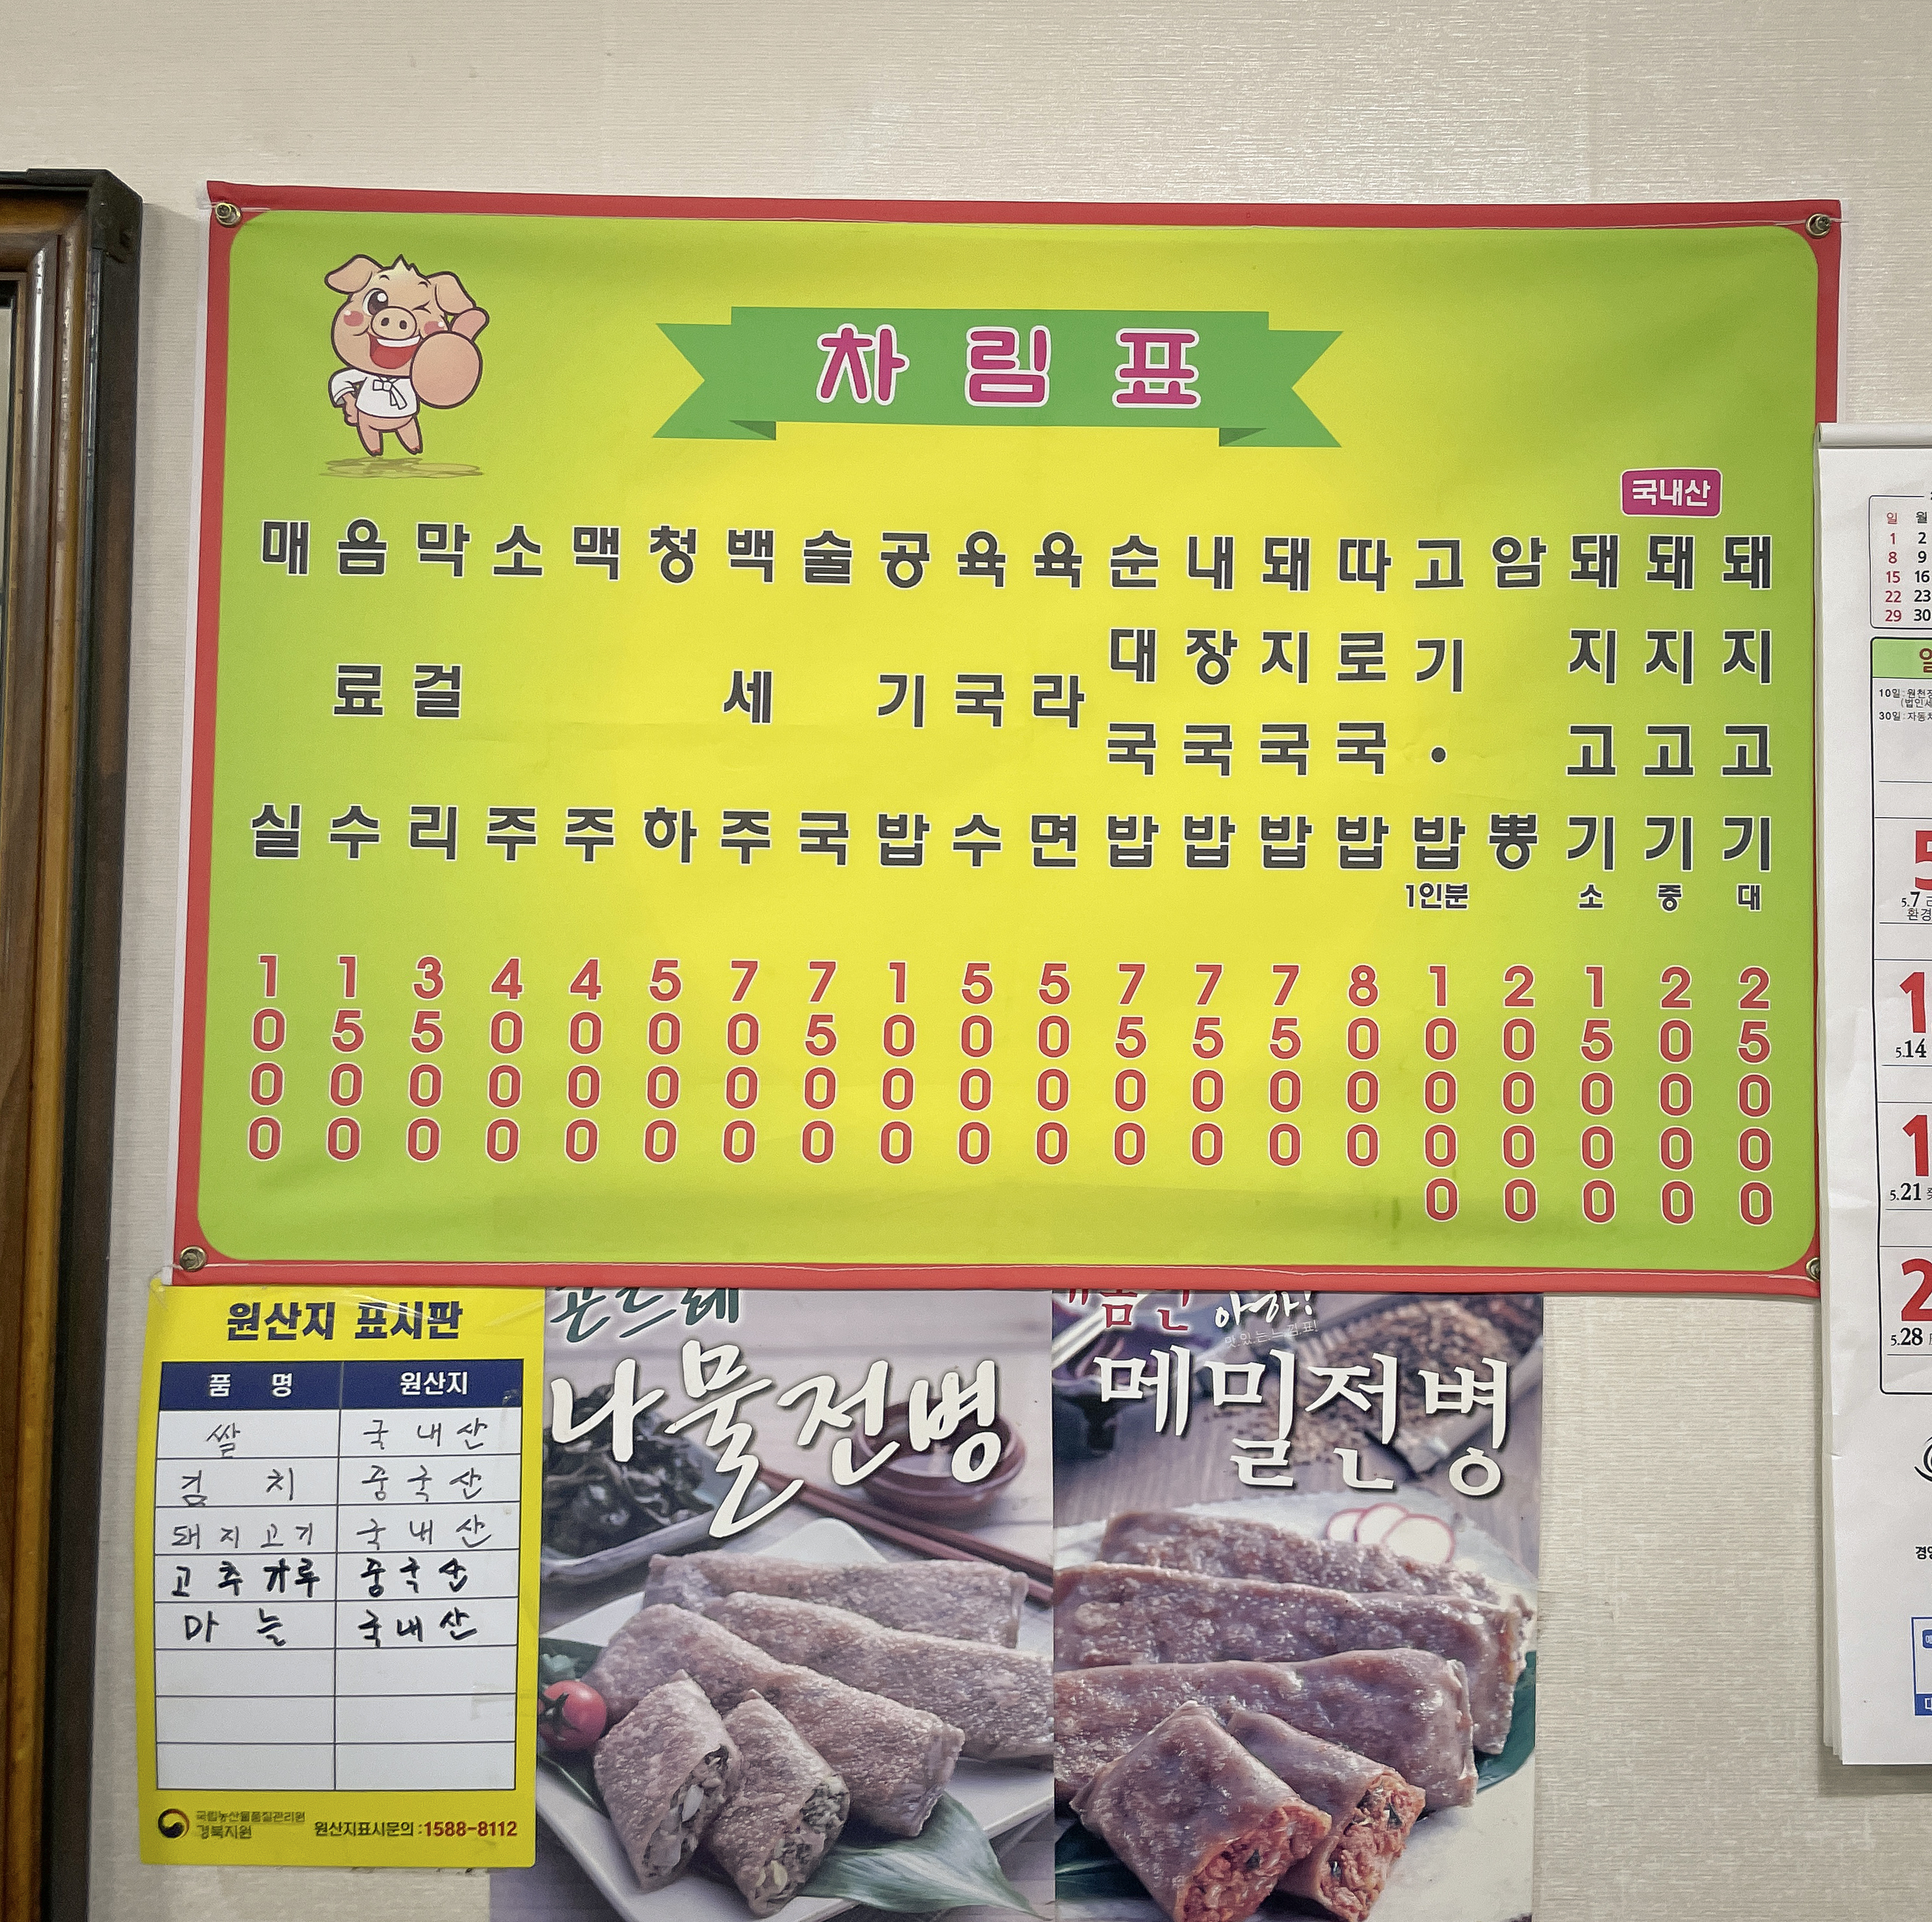 차림표
국내산
매실 1000
음료수 1500
막걸리 3500
소주 4000
맥주 4000
청하 5000
백세주 7000
술국 7500
공기밥 1000
육국수 5000
육라면 5000
순대국밥 7500
내장국밥 7500
돼지국밥 7500
따로국밥 8000
고기·밥 1인분 10000
암뽕 20000
돼지고기 소 15000
돼지고기 중 20000
돼지고기 대 25000
원산지 표시판
품 명 원산지
쌀 국내산
김치 중국산
돼지고기 국내산
고추가루 중국산
마늘 국내산
국립농산물품질관리원
경북지원
원산지표시문의 : 1588-8112
곤드레
나물전병
아하!
메밀전병
일 월
1 2
8 9
15 16
22 23
29 30
5.7
5.14
5.21
5.28